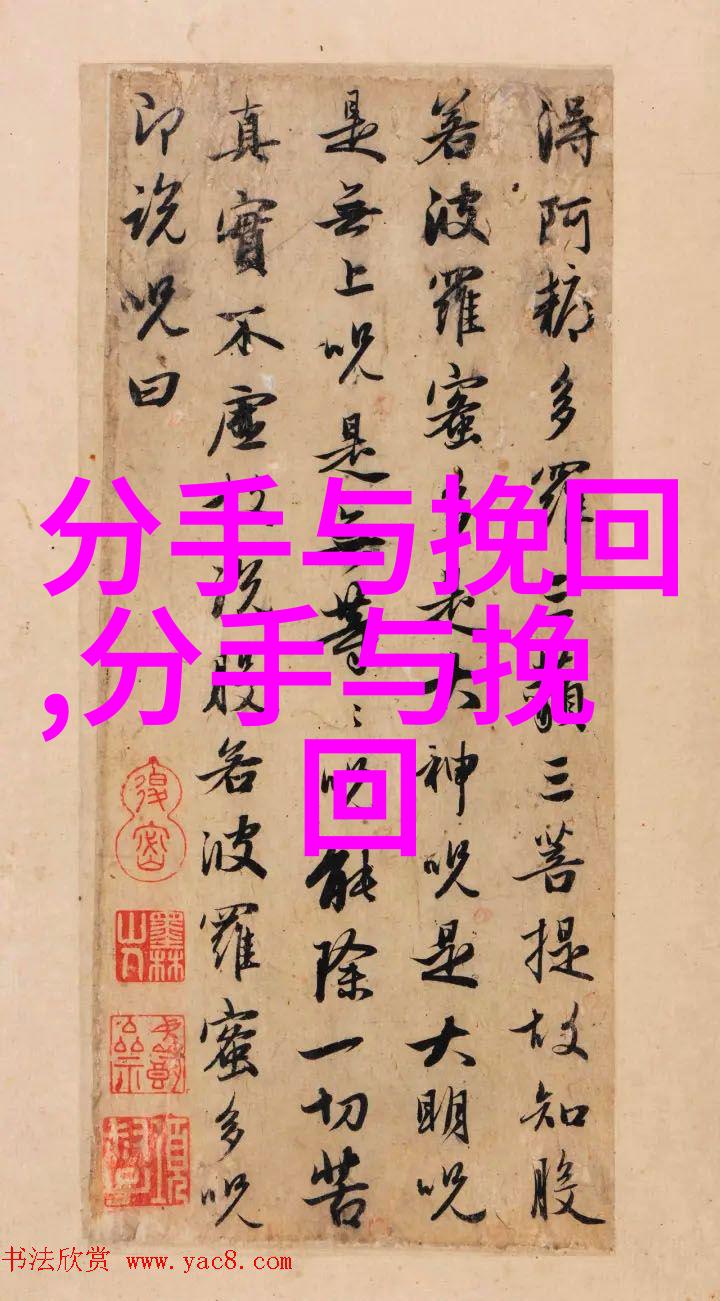 得阿耨多羅三藐三菩提故知般
若波羅蜜多是大神呪是大明呪
是無上呪是無等〻呪能除一切苦
真實不虛故說般若波羅蜜多呪
即說呪曰
分手与挽回
,分手与挽
回
墨林山人
书法欣赏 www.yac8.com